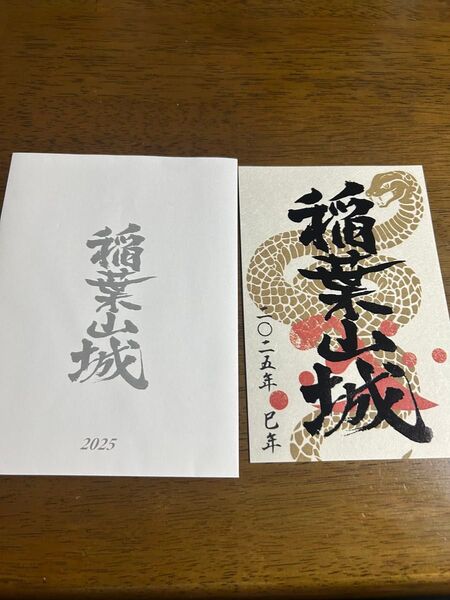 稲葉山城
2025
稲葉山城
二〇二五年 巳年